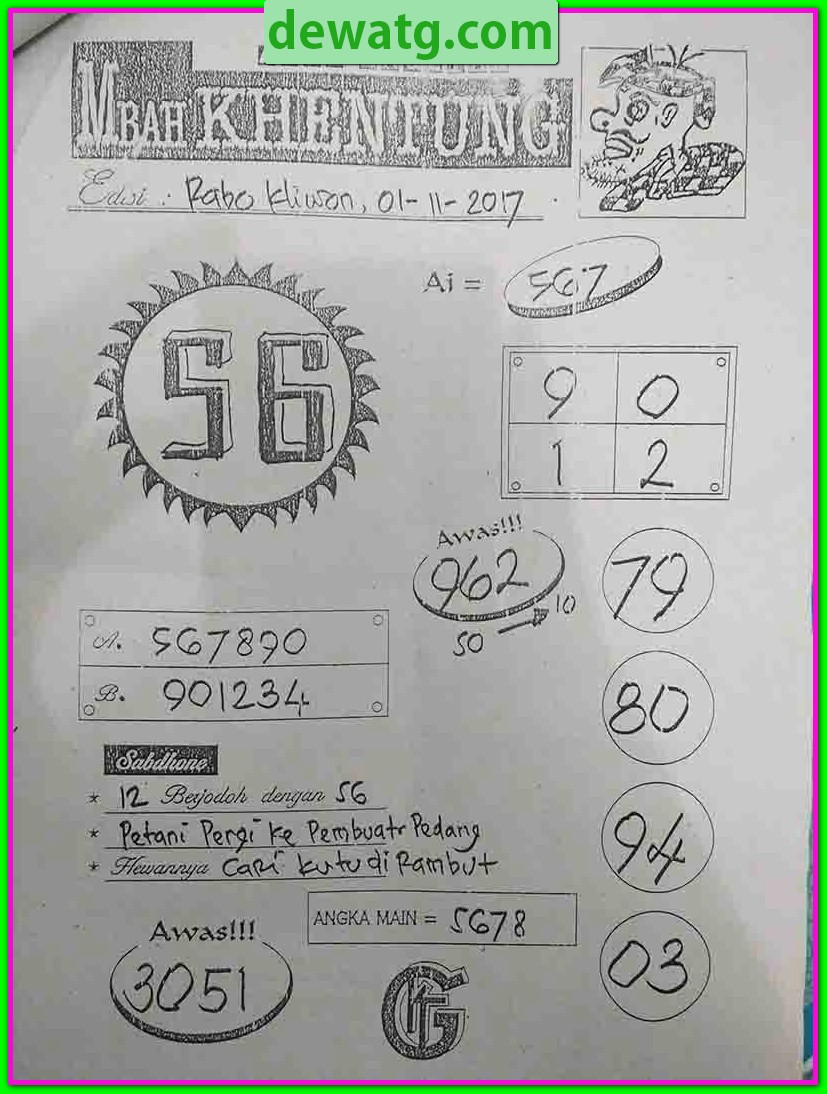 dewatg.com
MBAH KHENTUNG
Edisi : Rabo Kliwon, 01-11-2017
Ai = 567
56
9 0
1 2
Awas!!!
962
50 10
79
A. 567890
B. 901234
80
Sabdhone
* 12 Berjodoh dengan 56
* Petani Pergi ke Pembuatr Pedang
* Hewannya Cari kutu di Rambut
94
ANGKA MAIN = 5678
Awas!!!
3051
03